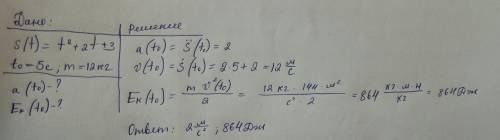 Дано:
S(t) = t² + 2t + 3
t₀ = 5c, m = 12кг
a(t₀) - ?
Eк(t₀) - ?
Решение
a(t₀) = S̈(t₀) = 2
v(t₀) = Ṡ(t₀) = 2·5 + 2 = 12 м/с
Eк(t₀) = m v²(t₀) / 2 = 12 кг · 144 · м² / с² · 2 = 864 кг · м · Н / кг = 864 Дж
Ответ: 2 м/с² ; 864 Дж